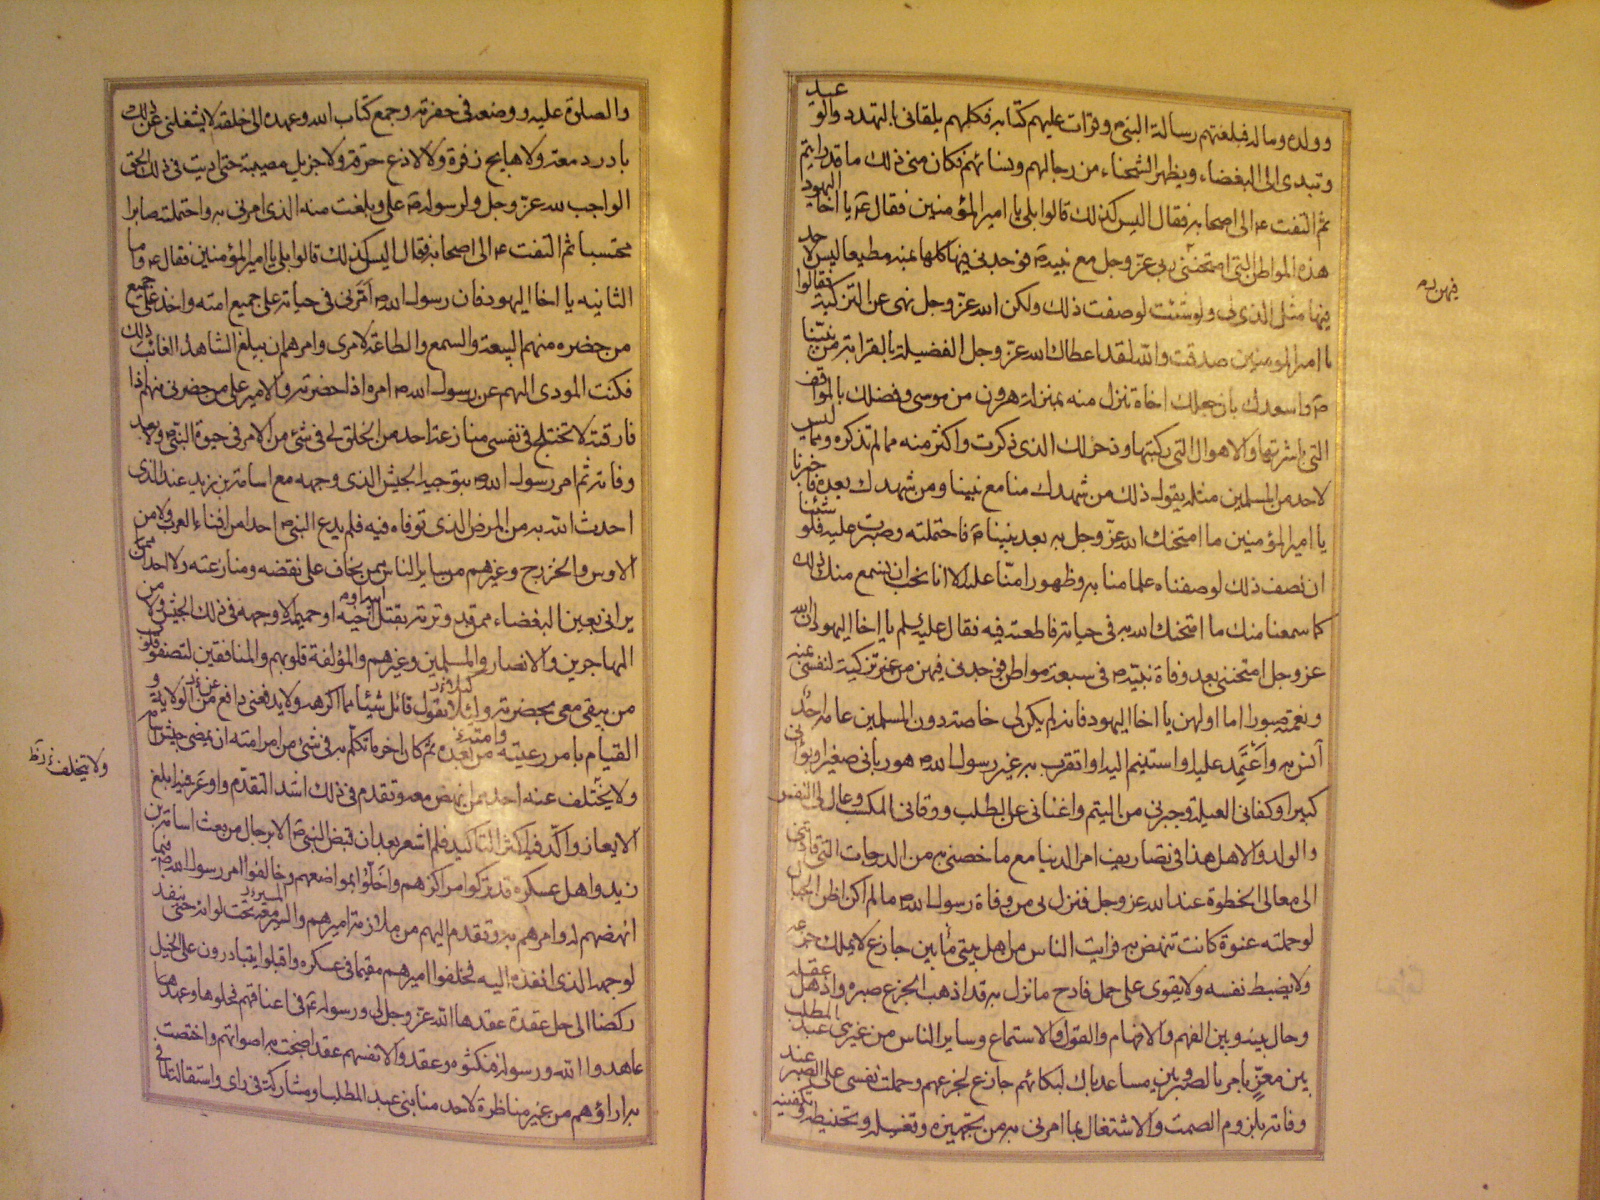 وولده وماله فبلغتهم رسالة النبي ص وقرات عليهم كتابه فكلهم يلقاني بالتهدد والوعيد
وتبدى الى البغضاء ويظهر الشحناء من رجالهم ونسائهم فكان منى ذلك ما قد رايتم
ثم التفت ع الى اصحابه فقال اليس كذلك قالوا بلى يا امير المؤمنين فقال ع يا اخا اليهود
هذه المواطن التى امتحننى ربى عز وجل مع نبيه ص فوجدنى فيها كلها بمنه مطيعا ليس لاحد
فيها مثل الذى لى ولو شئت لوصفت ذلك ولكن الله عز وجل نهى عن التزكية فقالوا
يا امير المومنين صدقت والله لقد اعطاك الله عز وجل الفضيلة بالقرابة من نبينا
ص واسعدك بان جعلك اخاه تنزل منه بمنزلة هرون من موسى وفضلك بالمواقف
التى باشرتها والاهوال التى ركبتها وذخر لك الذى ذكرت واكثر منه مما لم تذكره ومما ليس
لاحد من المسلمين مثله يقول ذلك من شهدك منا مع نبينا ومن شهدك بعده فاخبرنا
يا امير المؤمنين ما امتحنك الله عز وجل به بعد نبينا ص فاحتملته وصبرت عليه فلو شئنا
ان نصف ذلك لوصفناه علما منا به وظهورا منا عليه الا انا نحب ان نسمع منك ذلك
كما سمعنا منك ما امتحنك الله به فى حياته فاطعته فيه فقال عليه يسلم يا اخا اليهود ان الله
عز وجل امتحننى بعد وفاة نبيه ص فى سبعة مواطن فوجدنى فيهن من غير تزكية لنفسى بمنه
ونعمته صبورا اما اولهن يا اخا اليهود فانه لم يكن لى خاصة دون المسلمين عامة احد
آنس به واعتمد عليه او استنيم اليه او اتقرب به غير رسول الله ص هو ربانى صغيرا وبوانى
كبيرا وكفانى العيلة وجبرنى من اليتم واغنانى عن الطلب ووقانى المكسب وعال لى النفس
والولد والاهل هذا فى تصاريف امر الدنيا مع ما خصنى به من الدرجات التى قادتنى
الى معالى الحظوة عند الله عز وجل فنزل بى من وفاة رسول الله ص ما لم اكن اظن الجبال
لو حملته عنوة كانت تنهض به فرايت الناس من اهل بيتى ما بين جازع لا يملك جزعه
ولا يضبط نفسه ولا يقوى على حمل فادح ما نزل به قد اذهب الجزع صبره واذهل عقله
وحال بينه وبين الفهم والافهام والقول والاستماع وساير الناس من غير بنى عبد المطلب
بين معز يامر بالصبر وبين مساعد باك لبكائهم جازع لجزعهم وحملت نفسى على الصبر عند
وفاته بلزوم الصمت والاشتغال بما امرنى به من تجهيزه وتغسيله وتحنيطه وتكفينه
فيهن به
والصلوة عليه ووضعه فى حفرته وجمع كتاب الله وعهده الى خلقه لا يشغلنى عن ذلك
بادر دمعة ولا هايج زفرة ولا لاذع حرقة ولا جزيل مصيبة حتى اديت فى ذلك الحق
الواجب لله عز وجل ولرسوله ص على وبلغت منه الذى امرنى به واحتملته صابرا
محتسبا ثم التفت ع الى اصحابه فقال اليس كذلك قالوا بلى يا امير المؤمنين فقال ع واما
الثانيه يا اخا اليهود فان رسول الله ص امرنى فى حياته على جميع امته واخذ على جميع
من حضره منهم البيعة والسمع والطاعة لامرى وامرهم ان يبلغ الشاهد الغائب ذلك
فكنت المودى اليهم عن رسول الله ص امره اذا حضرته والامير على من حضرنى منهم اذا
فارقته لا تختلج فى نفسى منازعة احد من الخلق لى فى شئ من الامر فى حيوة النبى ص ولا بعد
وفاته ثم امر رسول الله ص بتوجيه الجيش الذى وجهه مع اسامة بن زيد عند الذى
احدث الله به من المرض الذى توفاه فيه فلم يدع النبى ص احدا من افناء العرب ولا من
الاوس والخزرج وغيرهم من ساير الناس ممن يخاف على نقضه ومنازعته ولا احدا ممن
يرانى بعين البغضاء ممن قد وترته بقتل ابيه او اخيه او حميمه الا وجهه فى ذلك الجيش ولا من
المهاجرين والانصار والمسلمين وغيرهم والمؤلفة قلوبهم والمنافقين لتصفو قلوب
من يبقى معى بحضرته ولئلا يقول قائل شيئا مما اكرهه ولا يدفعنى دافع عن الولاية و
القيام بامر رعيته من بعده ثم كان اخر ما تكلم به فى شئ من امر امته ان يمضى جيش اسامة
ولا يختلف عنه احد ممن نهض معه وتقدم فى ذلك اشد التقدم واوعز فيه ابلغ
الايعاز واكد فيه اكثر التاكيد فلم اشعر بعد ان قبض النبى ص الا برجال من بعث اسامة بن
زيد واهل عسكره قد تركوا مراكزهم واخلوا بمواضعهم وخالفوا امر رسول الله ص فيما
انهضهم له وامرهم به وتقدم اليهم من ملازمة اميرهم والسير معه تحت لوائه حتى ينفد
لوجهه الذى انفذه اليه فخلفوا اميرهم مقيما فى عسكره واقبلوا يتبادرون على الخيل
ركضا الى حل عقدة عقدها الله عز وجل لى ورسوله ص فى اعناقهم فحلوها وعهد
عاهدوا الله ورسوله فنكثوه وعقدوا لانفسهم عقدا ضجت به اصواتهم واختصت
به اراؤهم من غير مناظرة لاحد منا بنى عبد المطلب او مشاركة فى راى او استقالة لما فى
ولا يتخلف